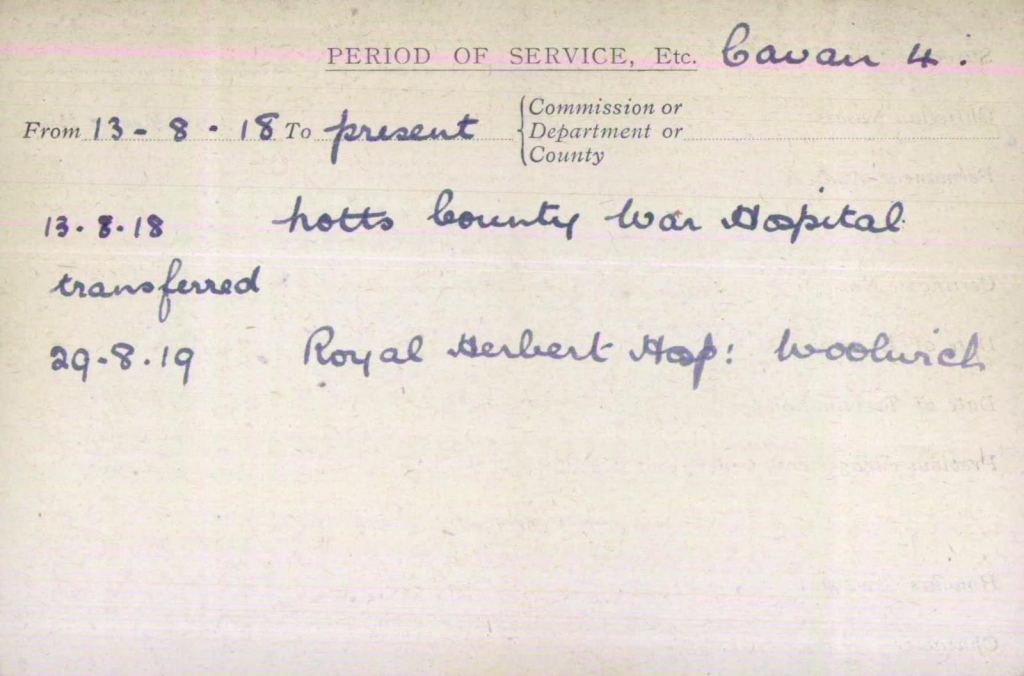 PERIOD OF SERVICE, Etc. Cavan 4.
From 13-8-18 To present {Commission or
Department or
County
13.8.18 Notts County War Hospital
transferred
29-8.19 Royal Herbert Hosp: Woolwich